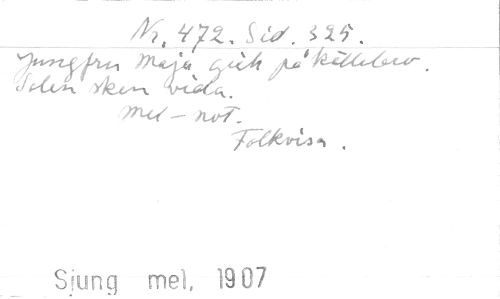 Nr. 472. Sid. 325.
Jungfru Maja gick på källebro.
Solen sken vida.
mel – not.
Folkvisa.
Sjung mel, 1907